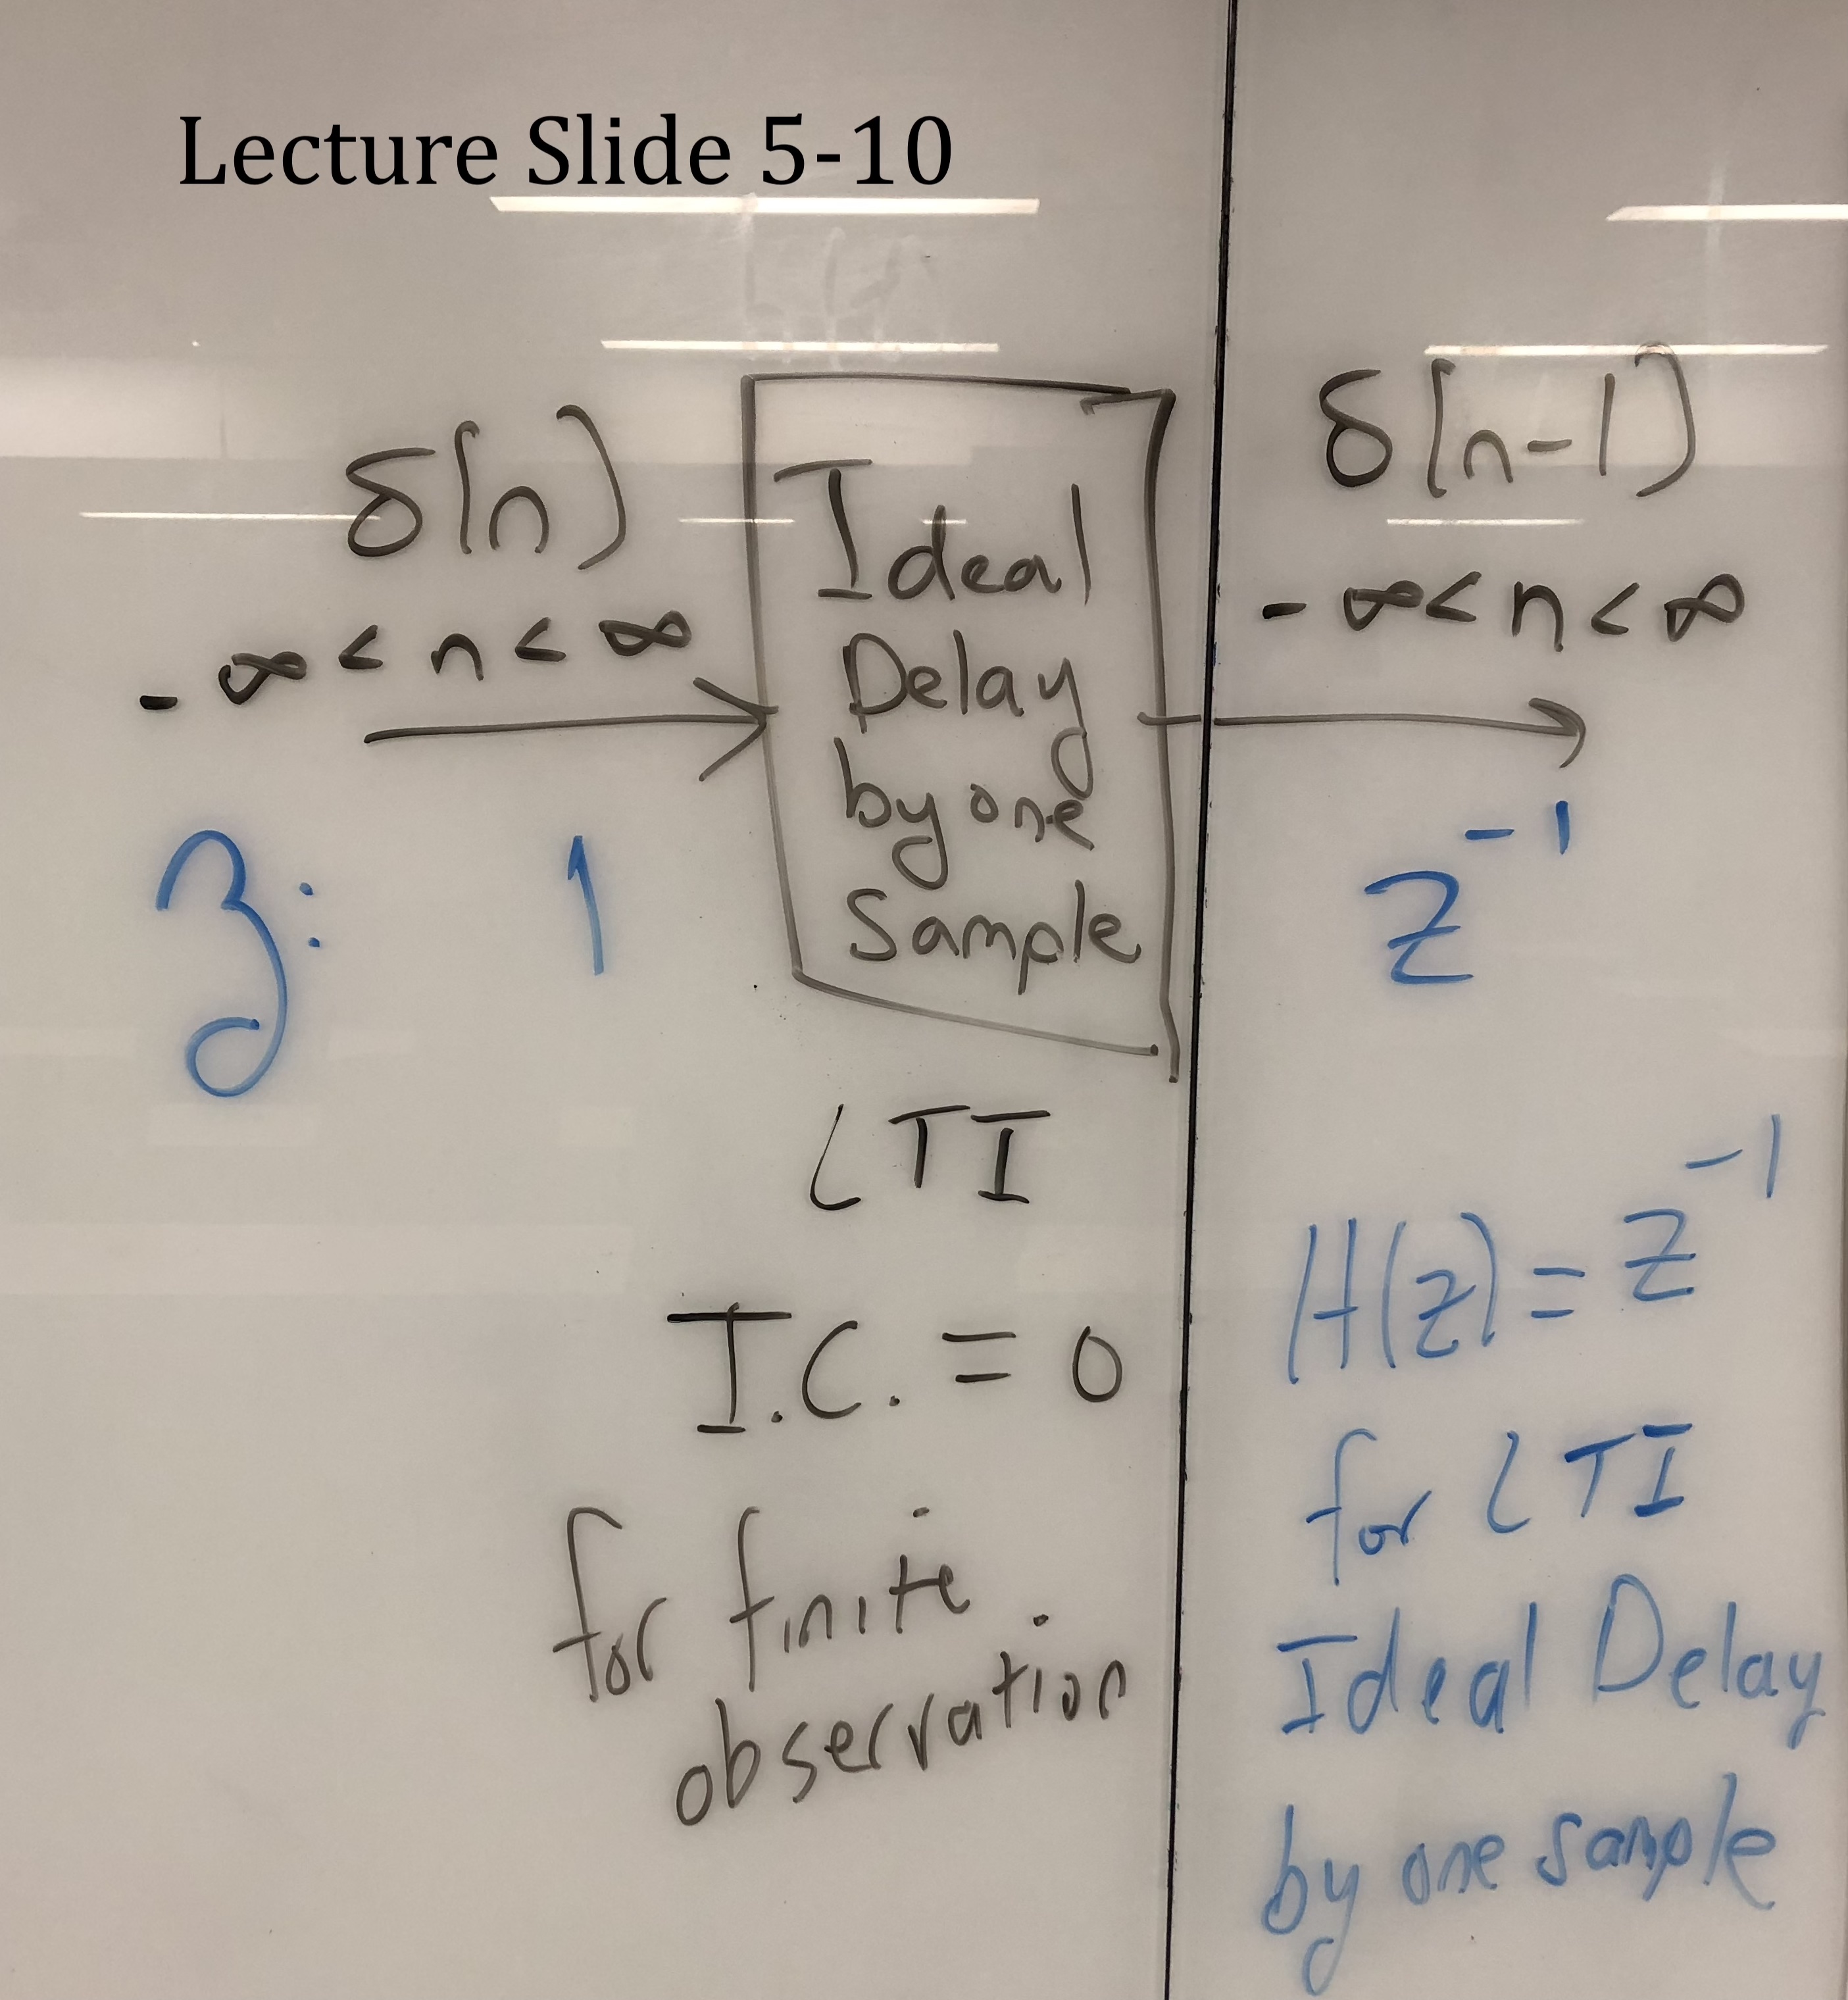 Lecture Slide 5-10
δ[n]
-∞ < n < ∞
Ideal
Delay
by one
Sample
δ[n-1]
-∞ < n < ∞
Z: 1
z⁻¹
LTI
I.C. = 0
for finite
observation
H(z) = z⁻¹
for LTI
Ideal Delay
by one sample